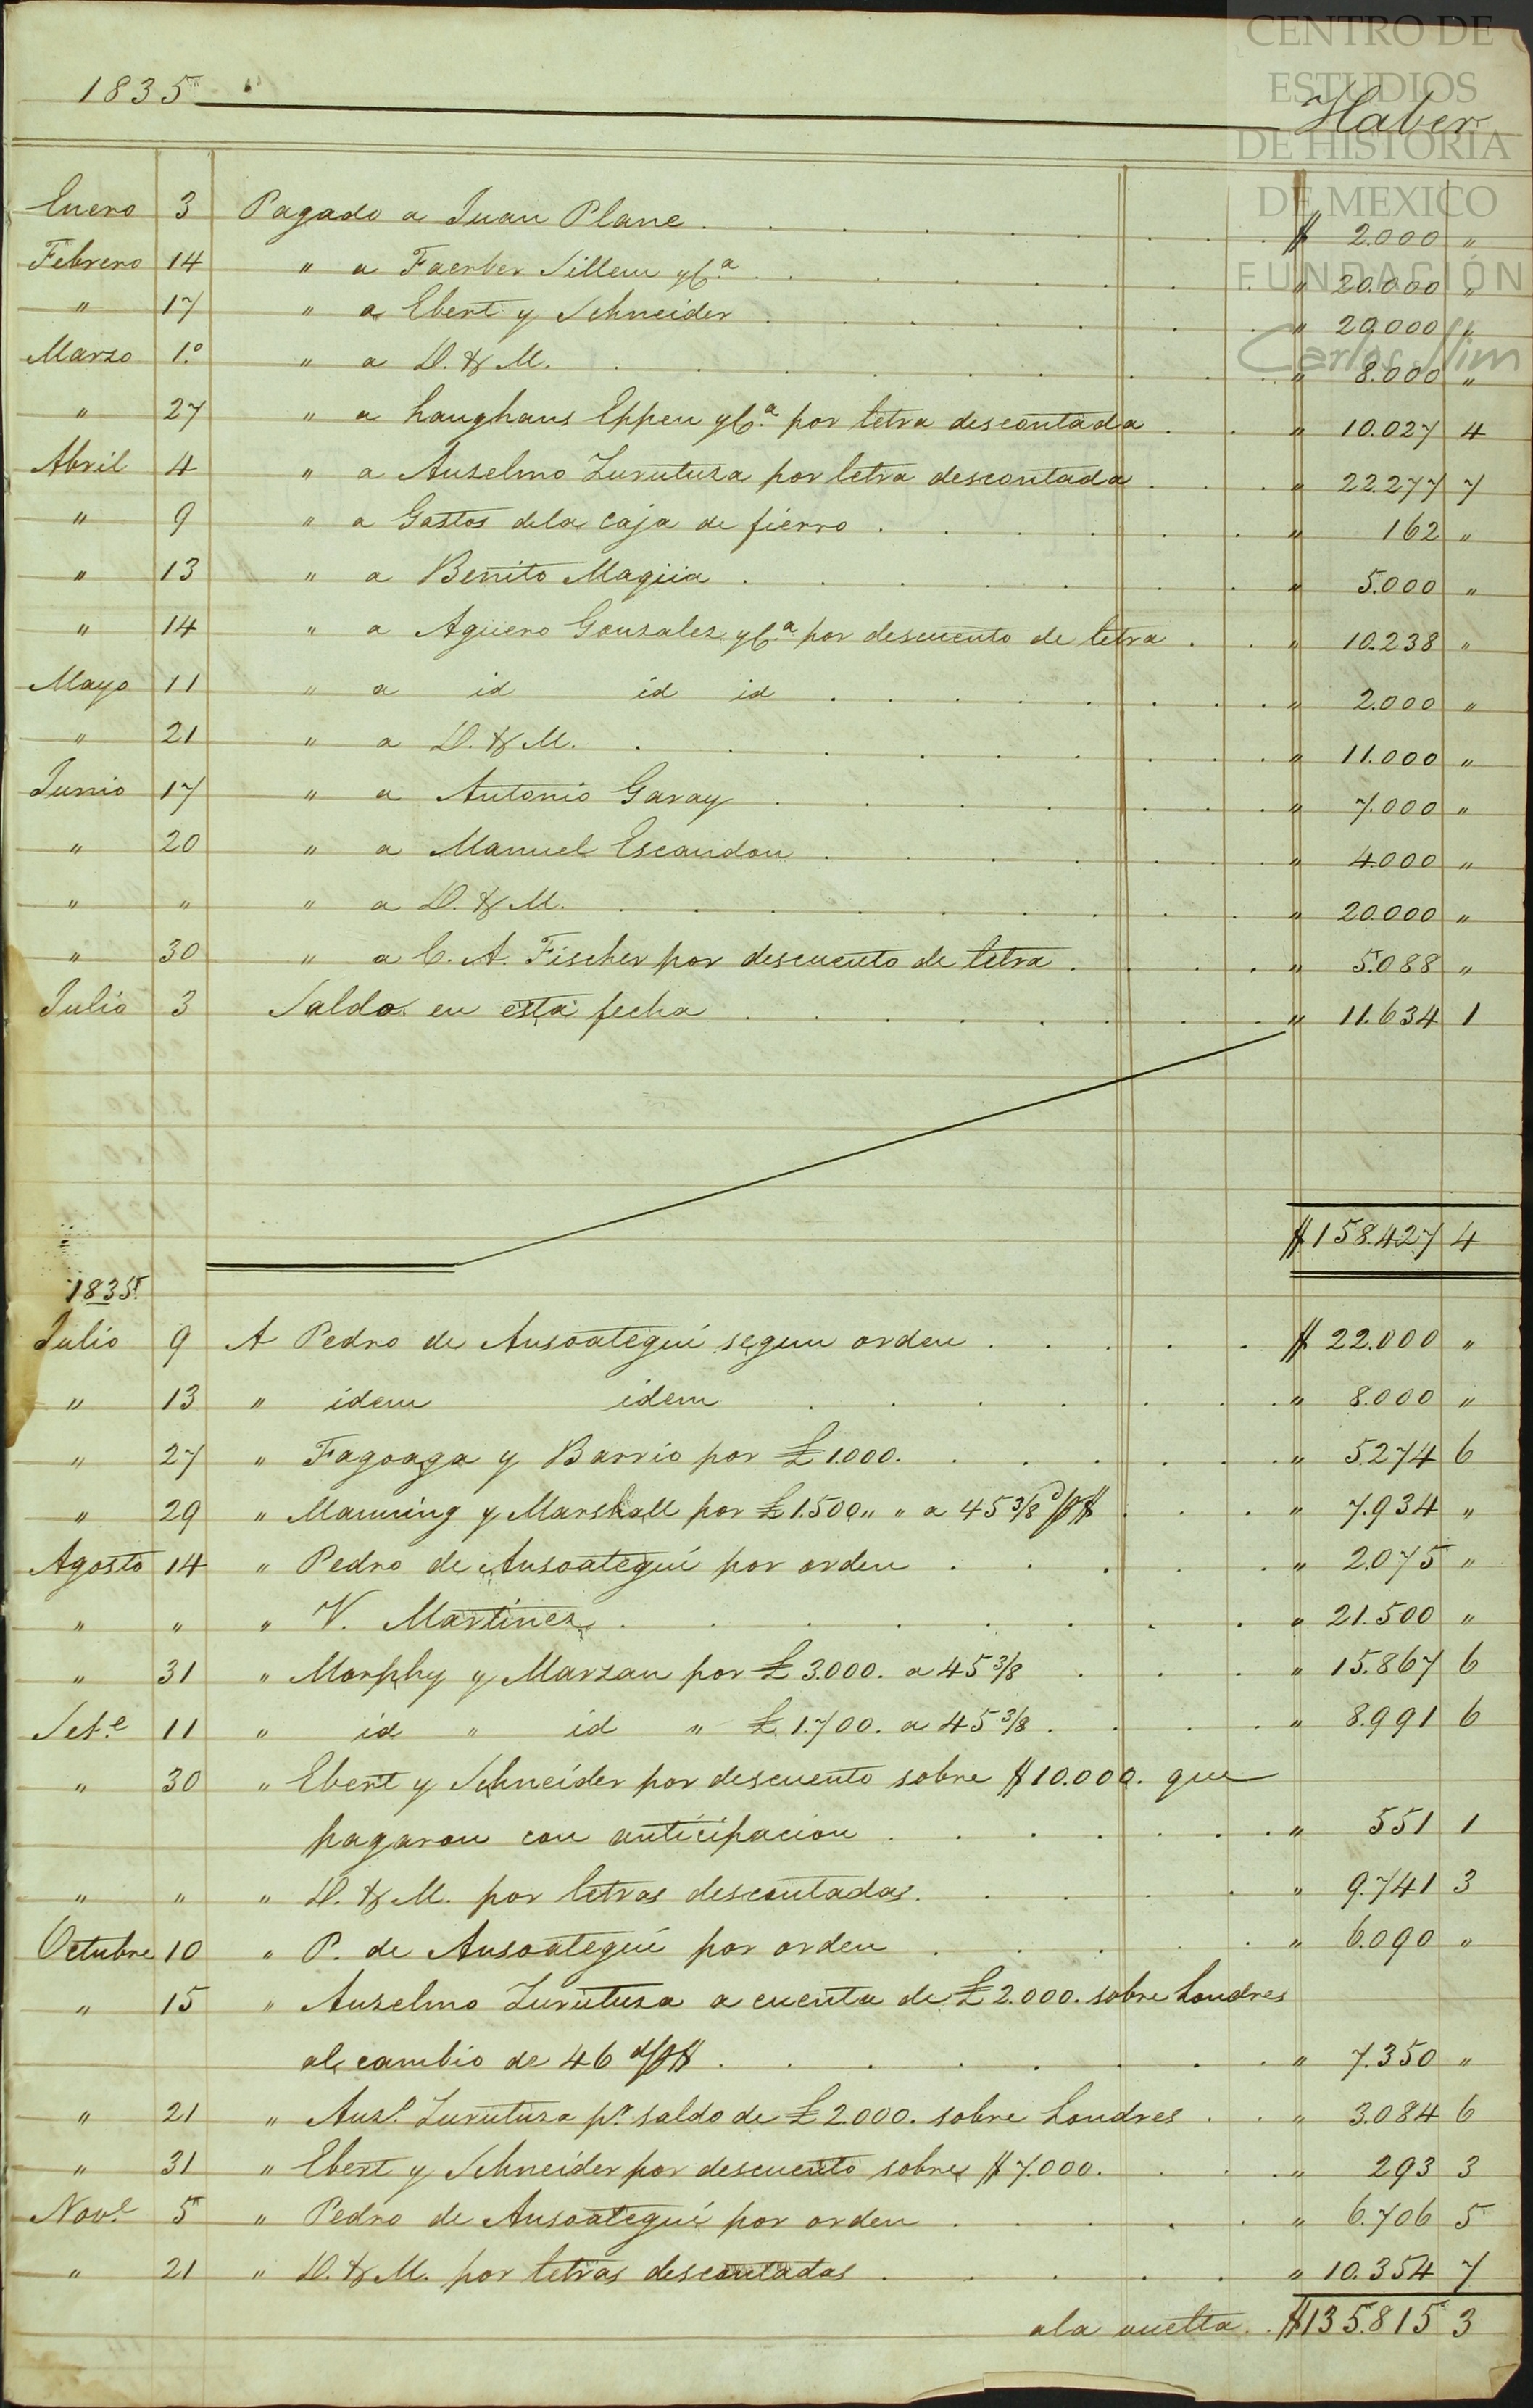 CENTRO DE
ESTUDIOS
DE HISTORIA
DE MEXICO
FUNDACIÓN
Carlos Slim
1835 Haber
Enero 3 Pagado a Juan Plane $ 2.000 "
Febrero 14 " a Faerber Sillem yCa. " 20.000 "
" 17 " a Ebert y Schneider " 20.000 "
Marzo 1.º " a D. & M. " 8.000 "
" 27 " a Langhans Eppen yCa. por letra descontada " 10.027 4
Abril 4 " a Anselmo Zurutuza por letra descontada " 22.277 7
" 9 " a Gastos dela caja de fierro " 162 "
" 13 " a Benito Magüa " 5.000 "
" 14 " a Agüero Gonzalez yCa. por descuento de letra " 10.238 "
Mayo 11 " a id id id " 2.000 "
" 21 " a D. & M. " 11.000 "
Junio 17 " a Antonio Garay " 7.000 "
" 20 " a Manuel Escandon " 4.000 "
" " " a D. & M. " 20.000 "
" 30 " a C. A. Fischer por descuento de letra " 5.088 "
Julio 3 Saldo en esta fecha " 11.634 1
$ 158.427 4
1835.
Julio 9 A Pedro de Ansoategui segun orden $ 22.000 "
" 13 " idem idem " 8.000 "
" 27 " Fagoaga y Barrio por £ 1.000. " 5.274 6
" 29 " Manning y Marshall por £ 1.500 " " a 45 3/8 d/p$ " 7.934 "
Agosto 14 " Pedro de Ansoategui por orden " 2.075 "
" " " V. Martinez " 21.500 "
" 31 " Morphy y Marzan por £ 3.000. a 45 3/8 " 15.867 6
Set.e 11 " id " id " £ 1.700. a 45 3/8 " 8.991 6
" 30 " Ebert y Schneider por descuento sobre $ 10.000. que
pagaron con anticipacion " 551 1
" " " D. & M. por letras descontadas. " 9.741 3
Octubre 10 " P. de Ansoategui por orden " 6.090 "
" 15 " Anselmo Zurutuza a cuenta de £ 2.000. sobre Londres
al cambio de 46 d/p$ " 7.350 "
" 21 " Ans.o Zurutuza p.r saldo de £ 2000. sobre Londres " 3.084 6
" 31 " Ebert y Schneider por descuento sobre $ 7.000. " 293 3
Nov.e 5 " Pedro de Ansoategui por orden " 6.706 5
" 21 " D. & M. por letras descontadas " 10.354 7
ala vuelta $ 135.815 3